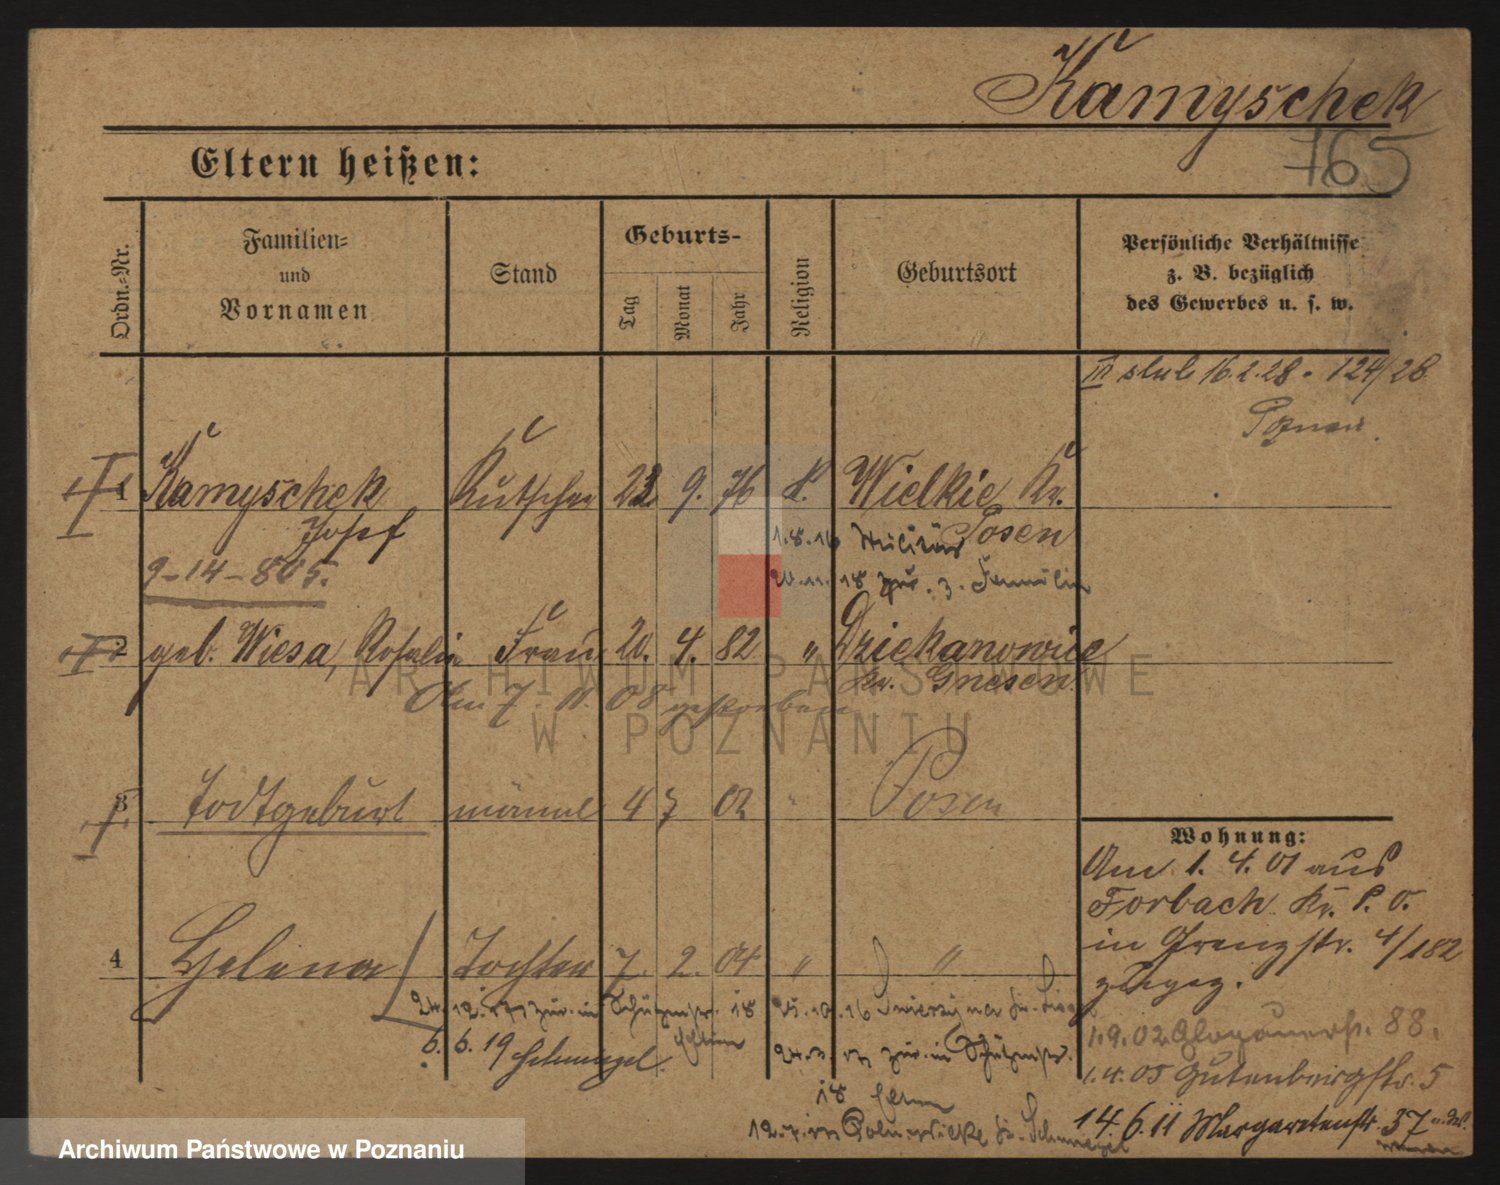 Kamyschek
765
Eltern heißen:
Ordn.-Nr.
Familien-
und
Vornamen
Stand
Geburts-
Tag
Monat
Jahr
Religion
Geburtsort
Persönliche Verhältnisse
z. B. bezüglich
des Gewerbes u. s. w.
III slub 16.2.28 - 124/28
Poznań.
1 Kamyschek Kutscher 23 9. 76 k. Wielkie Kr.
Josef Posen
1.8.16 Militär
9-14-805.
20.11.18 zur. z. Familie
2 geb. Wiesa, Rosalie Frau 20. 4. 82 " Dziekanowice
Kr. Gnesen
Am 7. 11. 08 gestorben
3 Todtgeburt männl 4 7 02 " Posen
Wohnung:
Am 1. 4. 01 aus
Forbach Kr. P. O.
in Grenzstr. 4/182
zugez.
4 Helena Tochter 7. 2. 04 " "
24.12.17 zur. in Schützenstr. 18
25.10.16
6. 6. 19
24.3.17 zur. in Schützenstr.
18
1.9.02 Glogauerstr. 88.
1.4.05 Gutenbergstr. 5
14.6.11 Margaretenstr. 37
ARCHIWUM PAŃSTWOWE
W POZNANIU
Archiwum Państwowe w Poznaniu